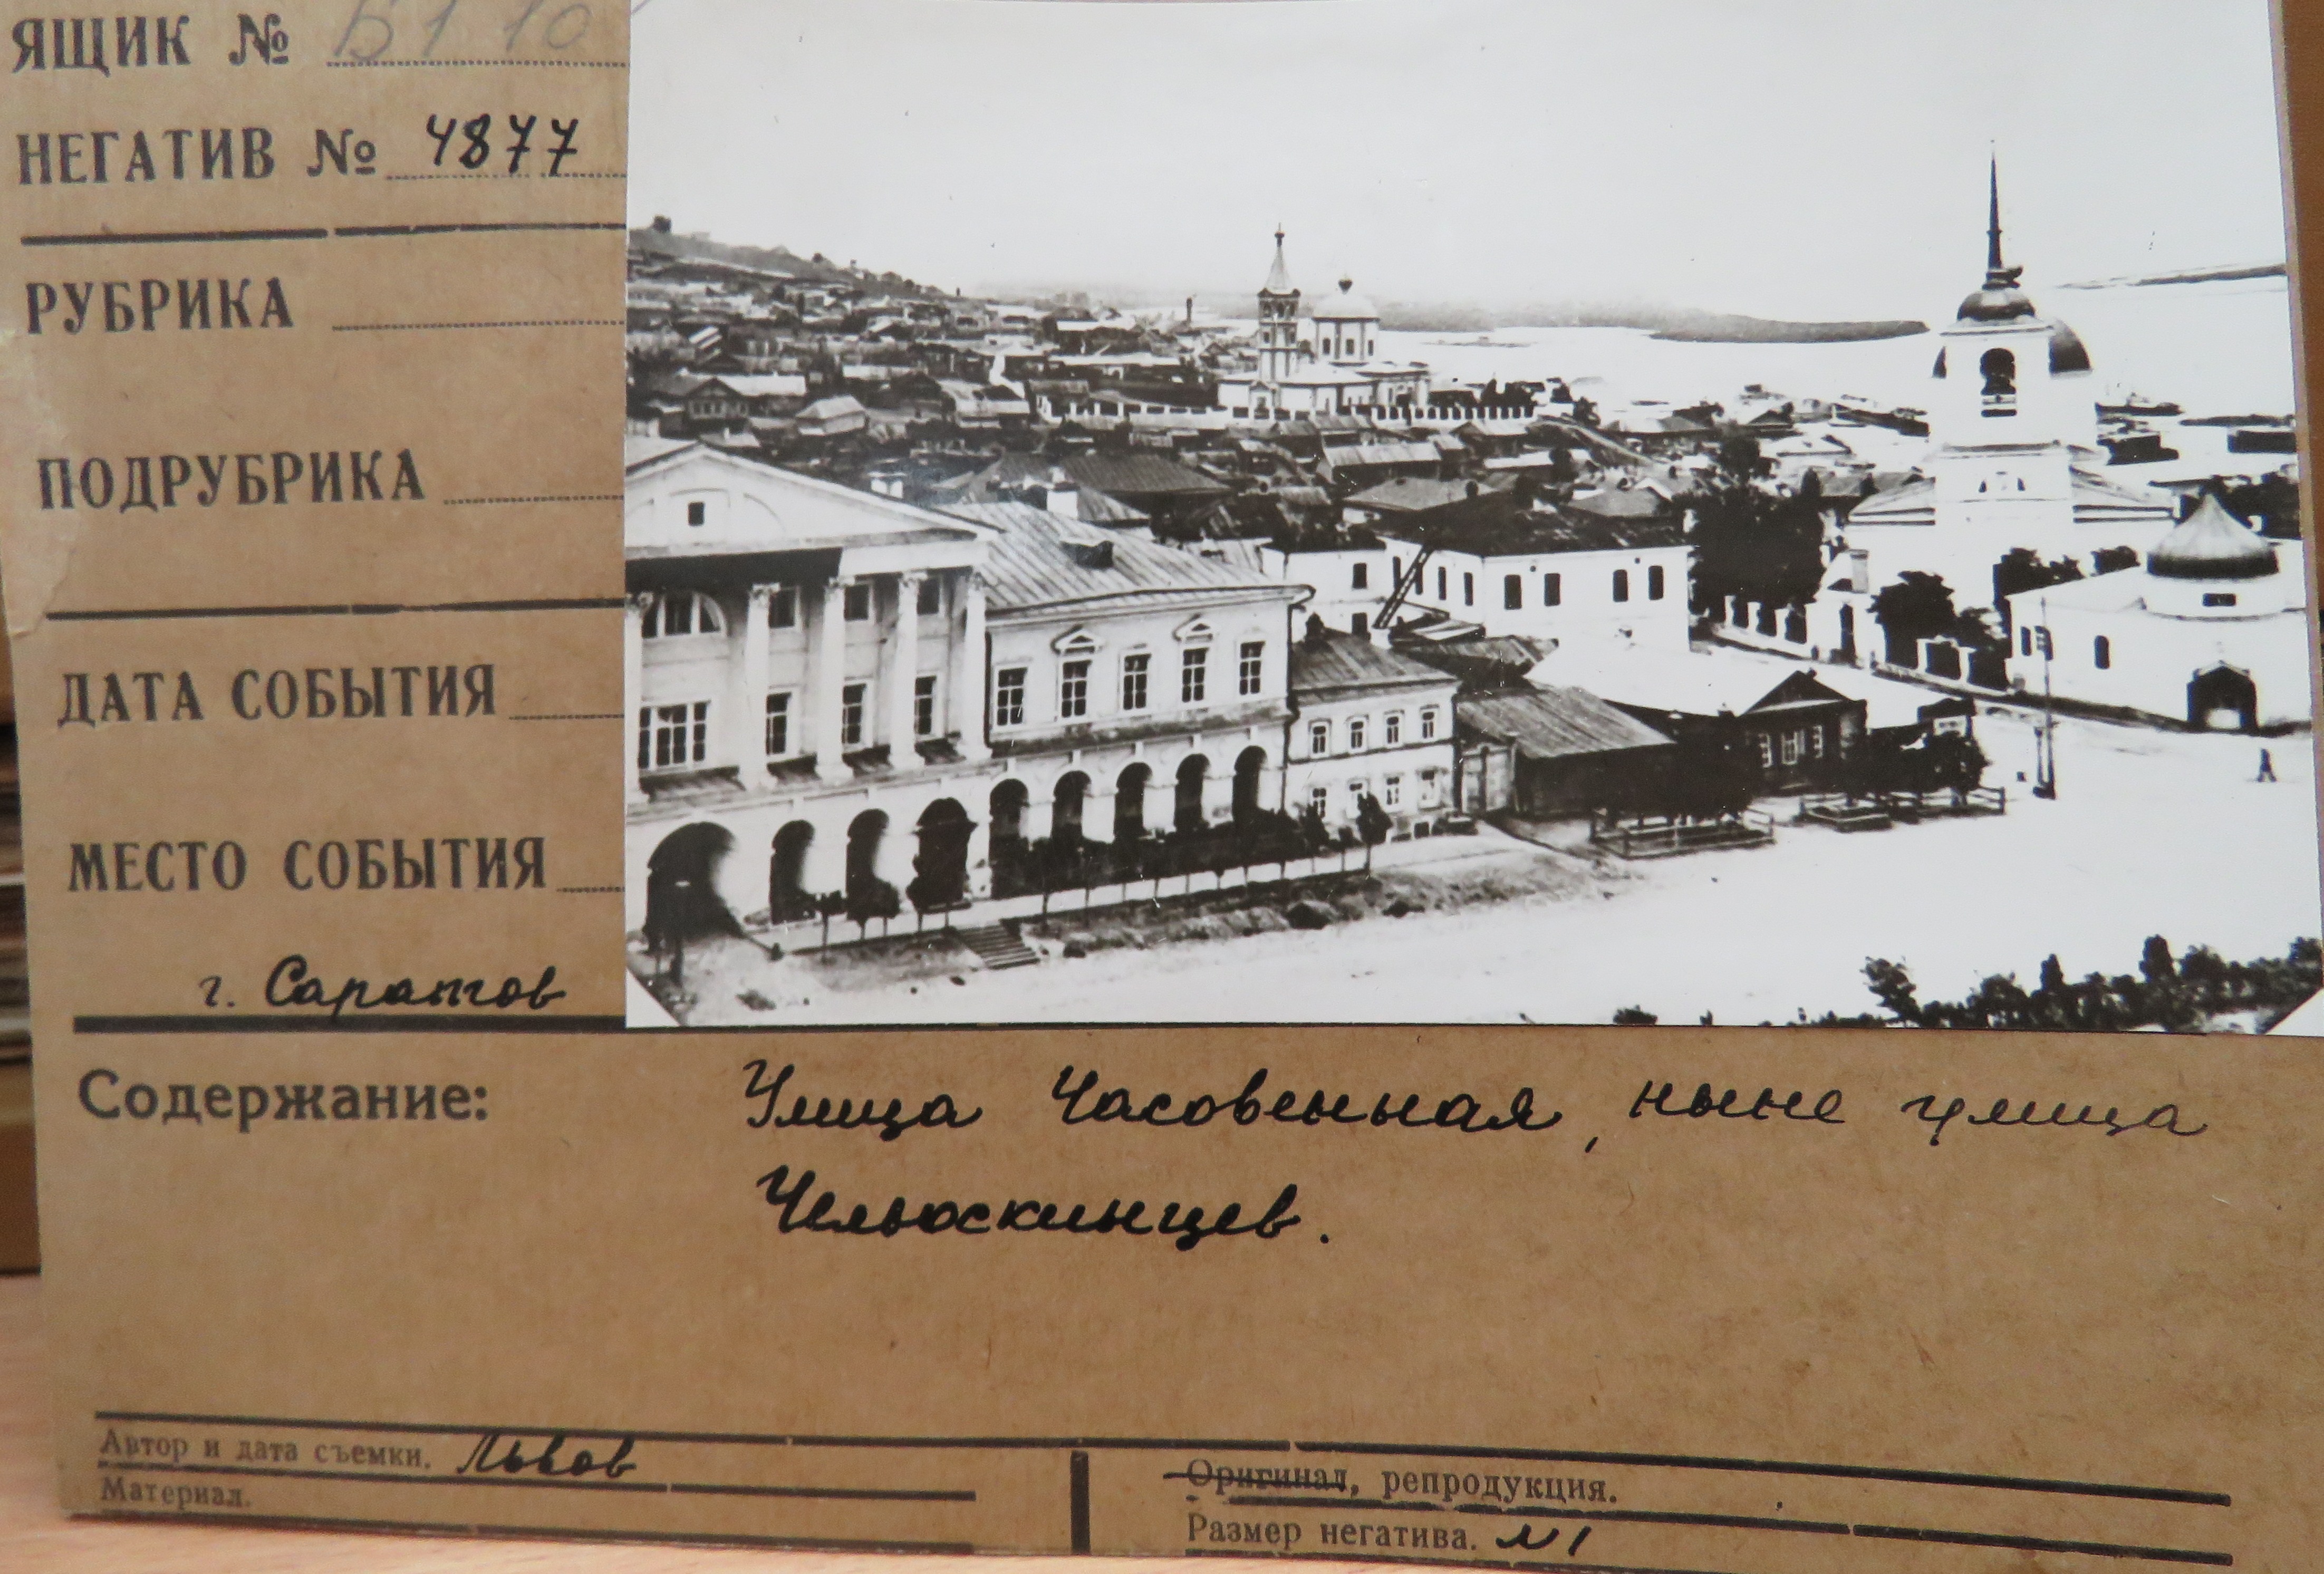 ЯЩИК № Б1 10
НЕГАТИВ № 4877
РУБРИКА
ПОДРУБРИКА
ДАТА СОБЫТИЯ
МЕСТО СОБЫТИЯ
г. Саратов
Содержание: Улица Часовенная, ныне улица
Челюскинцев.
Автор и дата съемки. Львов
Материал.
Оригинал, репродукция.
Размер негатива.